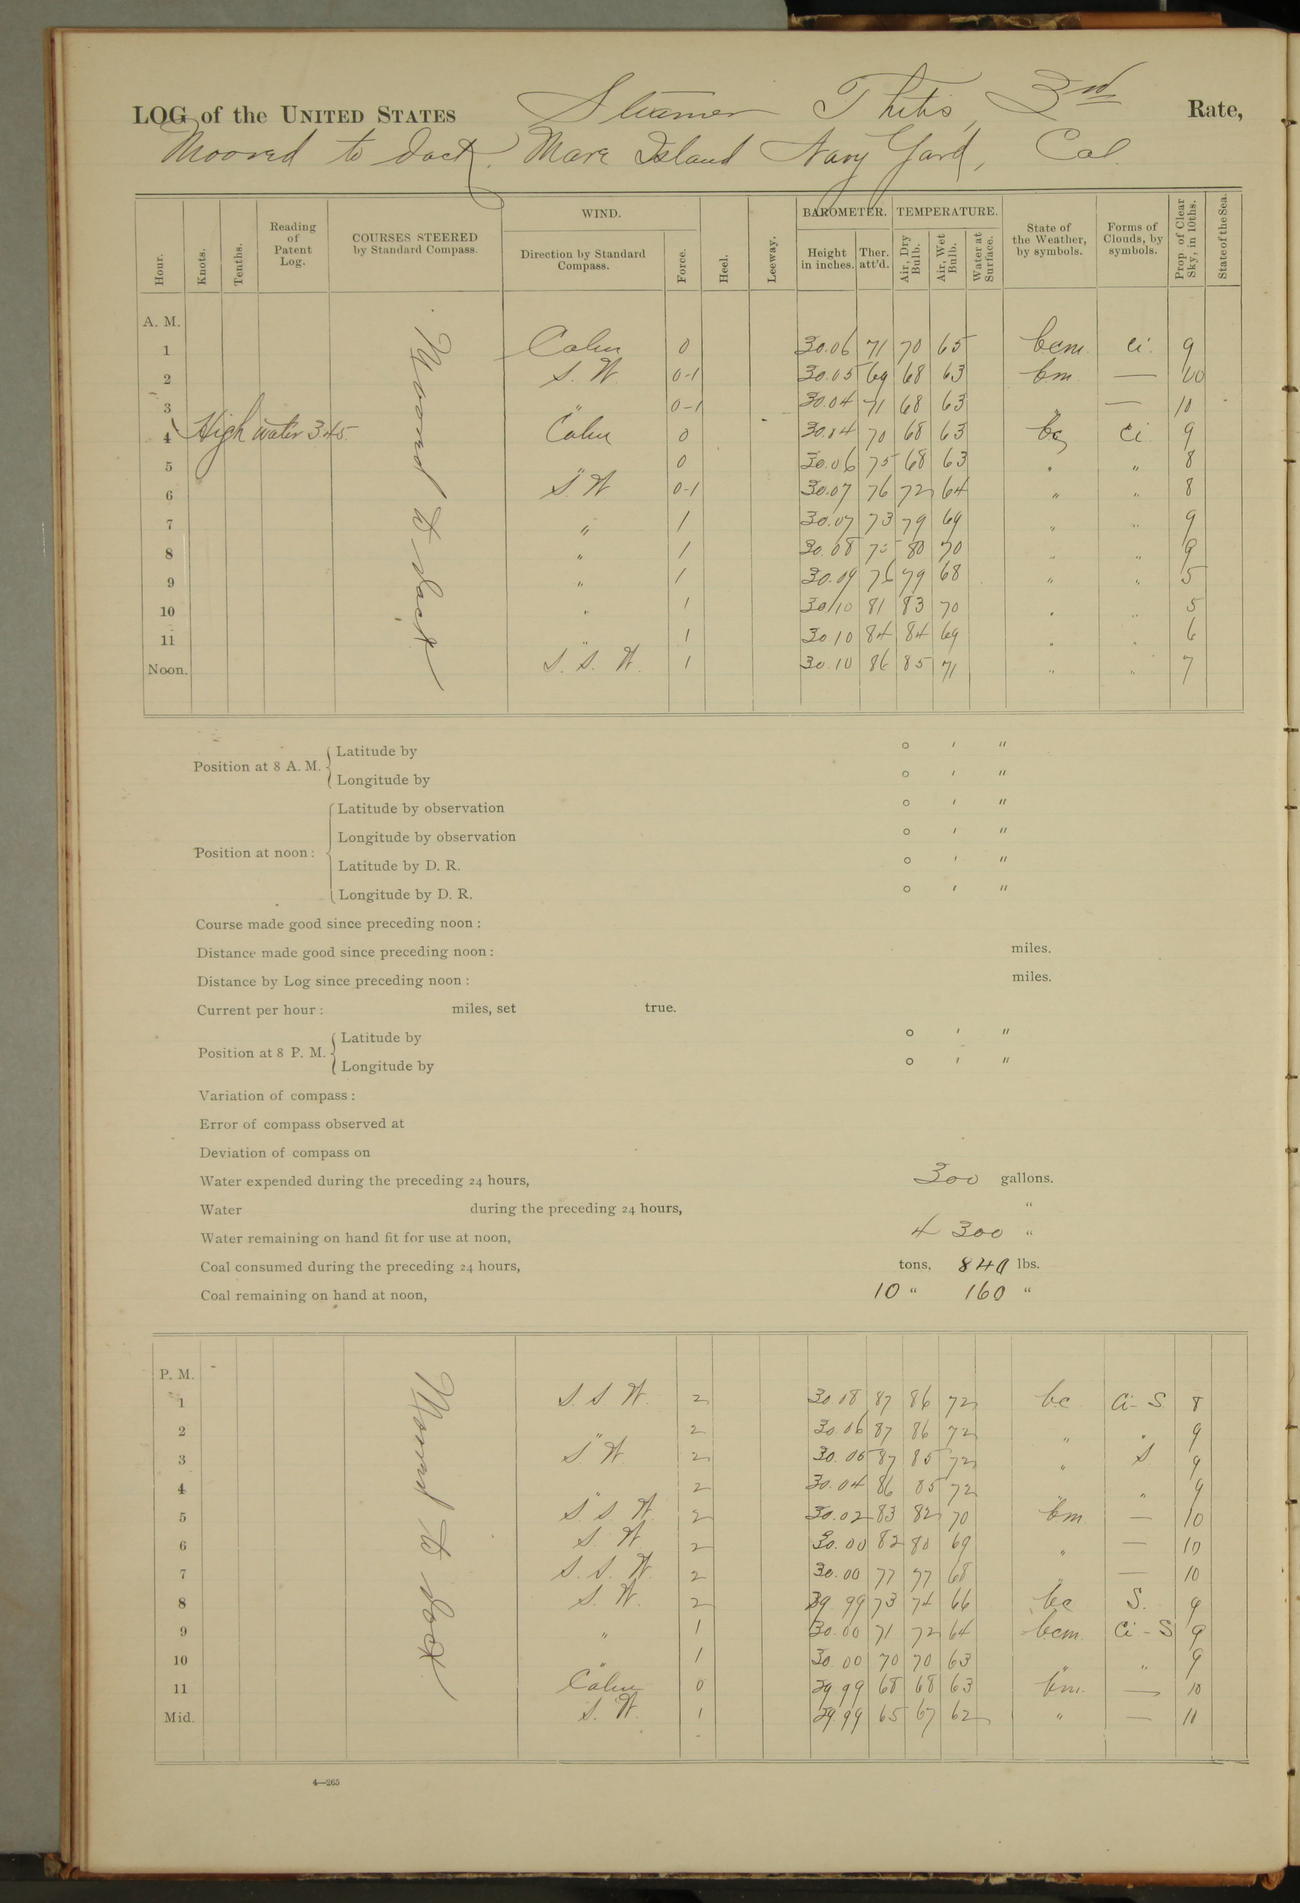 LOG of the UNITED STATES Steamer Thetis, 3rd Rate,
Moored to dock. Mare Island Navy Yard, Cal.
Hour. Knots. Tenths. Reading of Patent Log. COURSES STEERED by Standard Compass. WIND. Direction by Standard Compass. Force. Heel. Leeway. BAROMETER. Height in inches. Ther. att'd. TEMPERATURE. Air, Dry Bulb. Air, Wet Bulb. Water at Surface. State of the Weather, by symbols. Forms of Clouds, by symbols. Prop. of Clear Sky, in 10ths. State of the Sea.
A. M.
Moored to dock
1 Calm 0 30.06 71 70 65 bcm. ci. 9
2 S. W. 0-1 30.05 69 68 63 bm — 10
3 " 0-1 30.04 71 68 63 " — 10
4 High water 3.45. Calm 0 30.04 70 68 63 bc ci 9
5 " 0 30.06 75 68 63 " " 8
6 S. W 0-1 30.07 76 72 64 " " 8
7 " 1 30.07 73 79 69 " " 9
8 " 1 30.08 75 80 70 " " 9
9 " 1 30.09 76 79 68 " " 5
10 " 1 30.10 81 83 70 " " 5
11 " 1 30 10 84 84 69 " " 6
Noon. S. S. W. 1 30.10 86 85 71 " " 7
Position at 8 A. M. Latitude by ° ' "
Longitude by ° ' "
Position at noon: Latitude by observation ° ' "
Longitude by observation ° ' "
Latitude by D. R. ° ' "
Longitude by D. R. ° ' "
Course made good since preceding noon:
Distance made good since preceding noon: miles.
Distance by Log since preceding noon: miles.
Current per hour: miles, set true.
Position at 8 P. M. Latitude by ° ' "
Longitude by ° ' "
Variation of compass:
Error of compass observed at
Deviation of compass on
Water expended during the preceding 24 hours, 300 gallons.
Water during the preceding 24 hours, "
Water remaining on hand fit for use at noon, 4 300 "
Coal consumed during the preceding 24 hours, tons, 840 lbs.
Coal remaining on hand at noon, 10 " 160 "
P. M.
Moored to dock
1 S. S. W. 2 30.08 87 86 72 bc ci-S 8
2 " 2 30.06 87 86 72 " " 9
3 S W. 2 30.05 87 85 72 " S. 9
4 " 2 30.04 86 85 72 " " 9
5 S S W. 2 30.02 83 82 70 bm — 10
6 S. W. 2 30.00 82 80 69 " — 10
7 S. S. W. 2 30.00 77 77 68 " — 10
8 S. W. 2 29.99 73 74 66 bc S. 9
9 " 1 30.00 71 72 64 bcm. ci-S 9
10 " 1 30.00 70 70 63 " " 9
11 Calm 0 29.99 68 68 63 bm. — 10
Mid. S. W. 1 29.99 65 67 62 " — 10
4—265